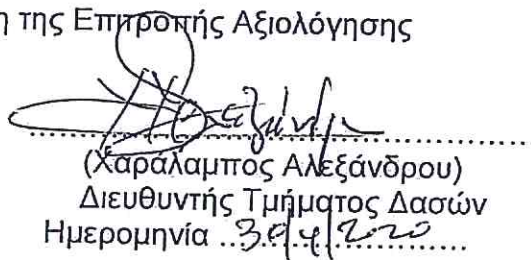 η της Επιτροπής Αξιολόγησης
(Χαράλαμπος Αλεξάνδρου)
Διευθυντής Τμήματος Δασών
Ημερομηνία ..30/4/2020..........